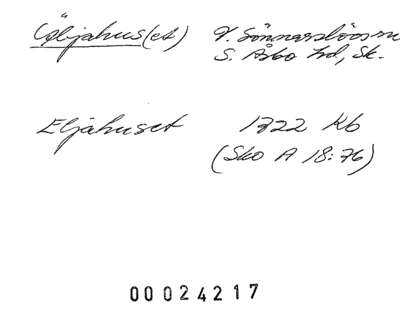 Öljahus(et) V. Sönnarslövs sn
S. Åsbo hd, Sk.
Eljahuset 1722 Kb
(Sko A 18:76)
00024217